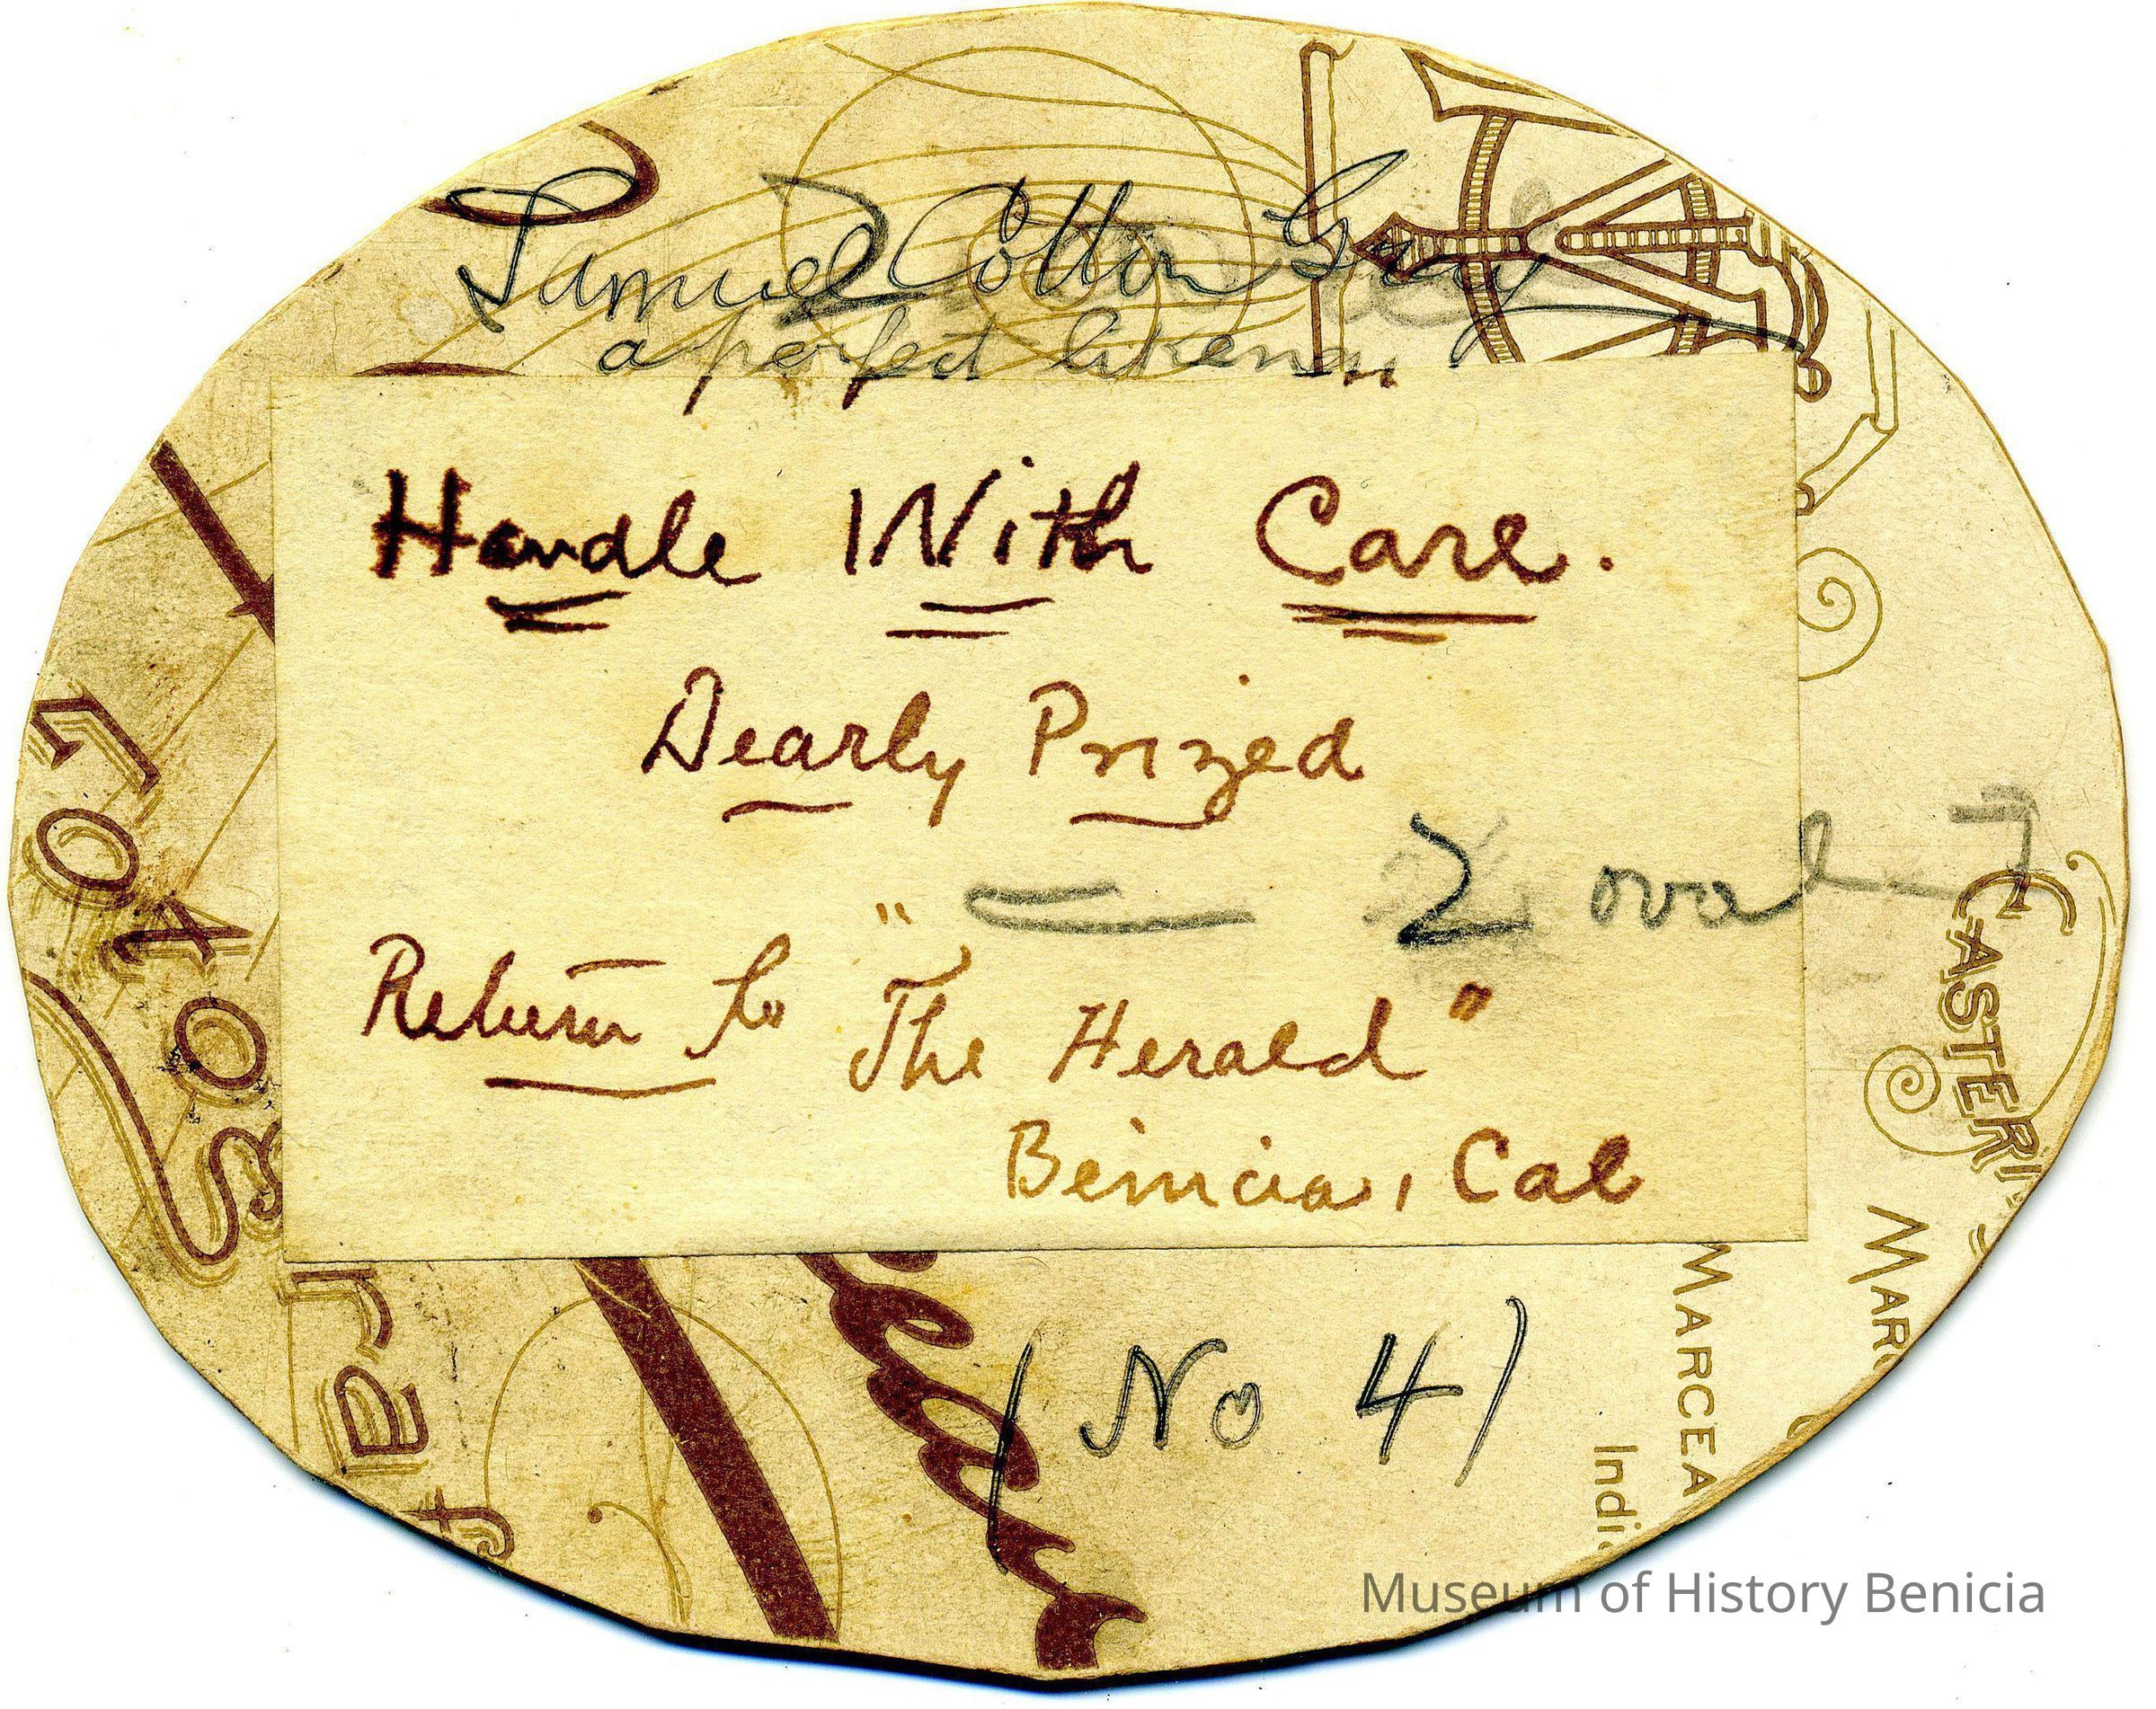 Samuel Cotton Gray
a perfect likeness
Handle With Care.
Dearly Prized
2 oval
Return to "The Herald"
Benicia, Cal
(No 4)
Fotog
raf
CASTERI
MARC
MARCEA
Indi
Museum of History Benicia